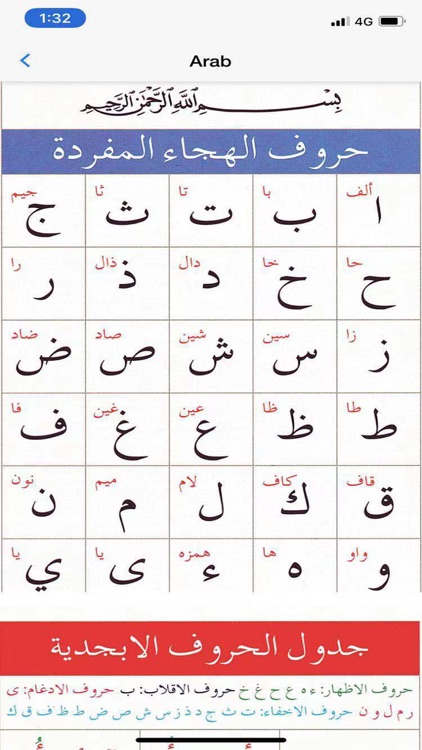 1:32 4G
Arab
بِسْمِ اللَّهِ الرَّحْمَٰنِ الرَّحِيمِ
حروف الهجاء المفردة
ألف با تا ثا جيم
ا ب ت ث ج
حا خا دال ذال را
ح خ د ذ ر
زا سين شين صاد ضاد
ز س ش ص ض
طا ظا عين غين فا
ط ظ ع غ ف
قاف كاف لام ميم نون
ق ك ل م ن
واو ها همزه يا يا
و ه ء ى ي
جدول الحروف الابجدية
حروف الاظهار: ء ه ع ح غ خ حروف الاقلاب: ب حروف الادغام: ى
ر م ل و ن حروف الاخفاء: ت ث ج د ذ ز س ش ص ض ط ظ ف ق ك